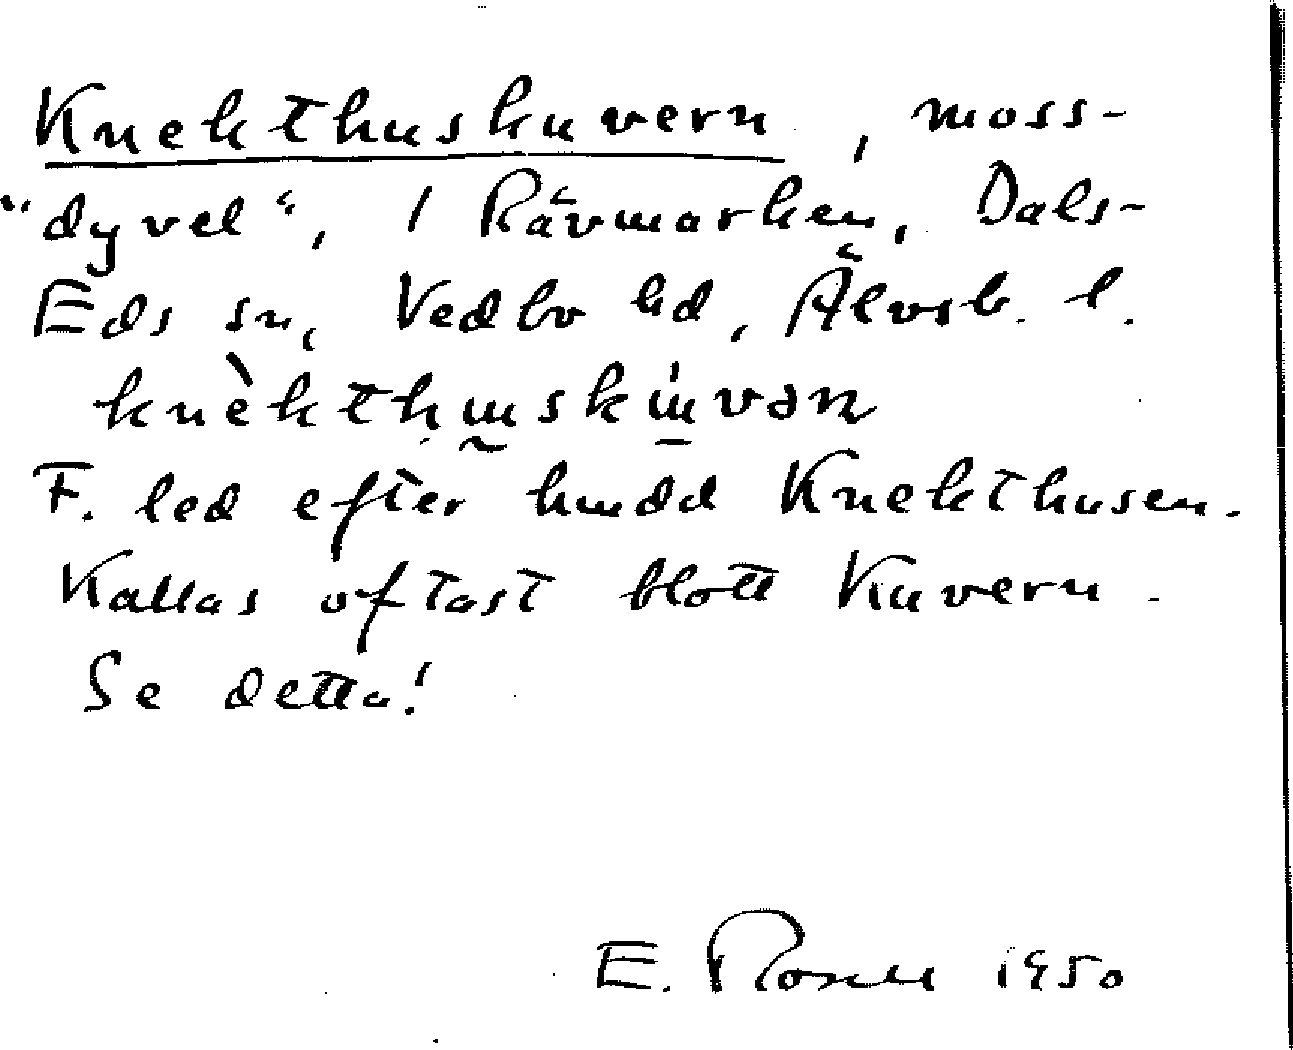 Knekthuskuvern, moss-
"dyvel", i Rävmarken, Dals-
Eds sn, Vedbo hd, Älvsb. l.
knèkthuskúvən
F. led efter hmdd Knekthusen.
Kallas oftast blott Kuvern.
Se detta!
E. Rosell 1950